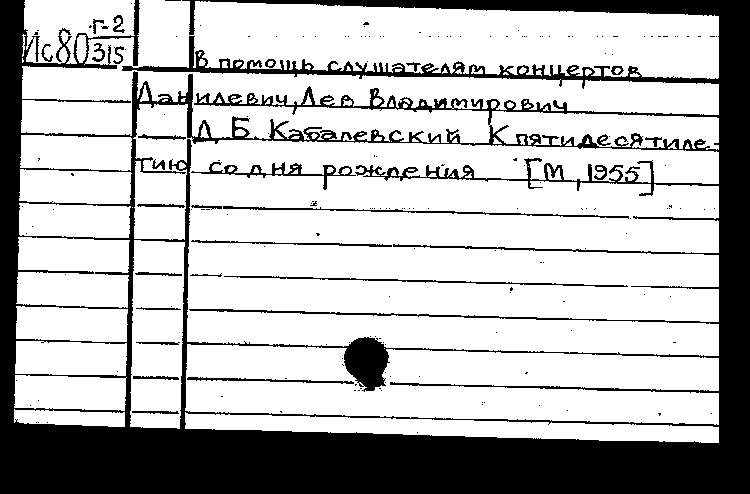 Г-2
Ис80 315
В помощь слушателям концертов
Данилевич, Лев Владимирович
Д. Б. Кабалевский К пятидесятиле-
тию со дня рождения [М, 1955]